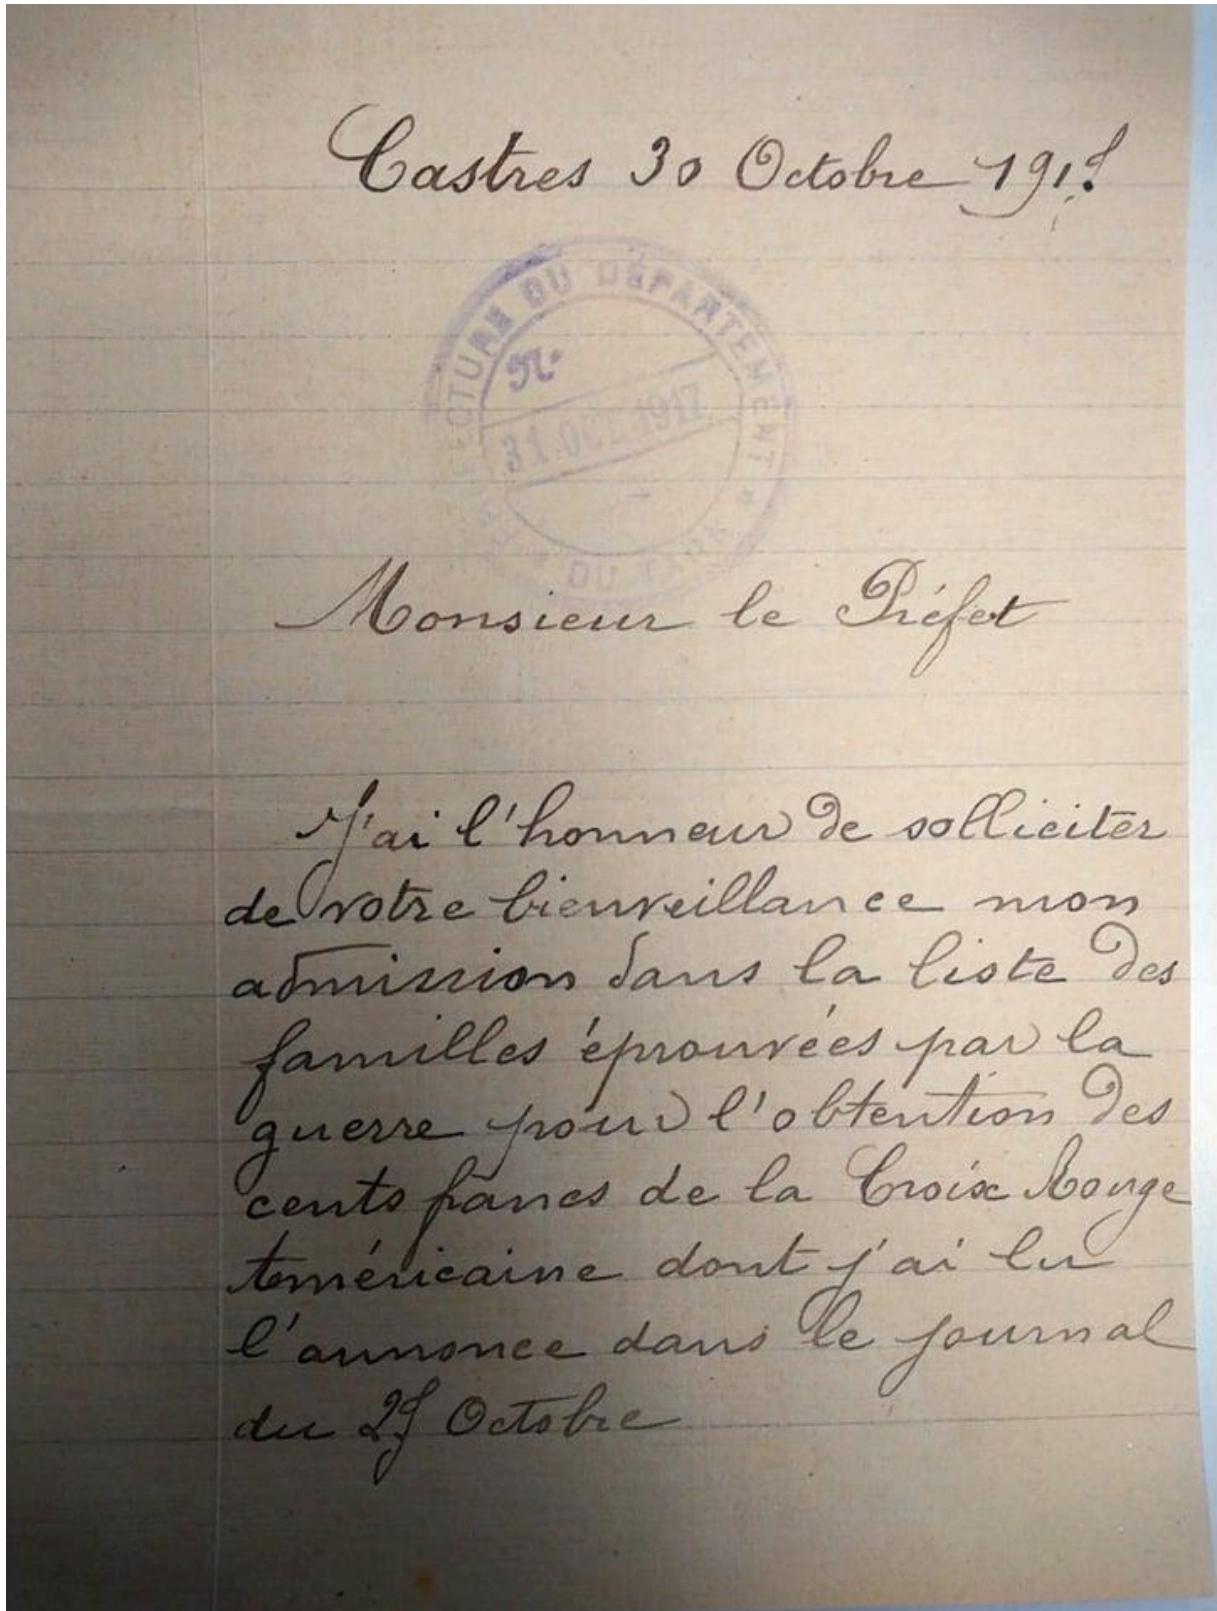 Castres 30 Octobre 1917
PRÉFECTURE DU DÉPARTEMENT
N.
31 OCT. 1917
DU TARN
Monsieur le Préfet
J'ai l'honneur de solliciter
de votre bienveillance mon
admission dans la liste des
familles éprouvées par la
guerre pour l'obtention des
cents francs de la Croix Rouge
Américaine dont j'ai lu
l'annonce dans le journal
du 29 Octobre